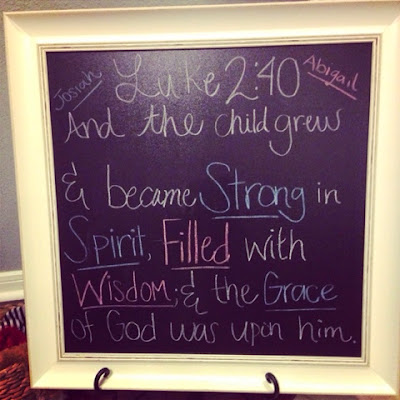 Josiah Luke 2:40 Abigail
And the child grew
& became Strong in
Spirit, Filled with
Wisdom; & the Grace
of God was upon him.